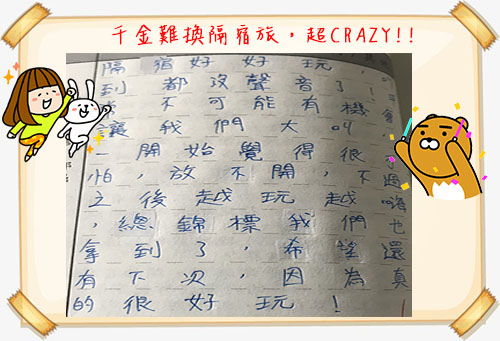 千金難換隔宿旅，超CRAZY!!
隔宿好好玩，
到都沒聲音了！
不可能有機會
讓我們大叫
一開始覺得很
怕，放不開，不過
之後越玩越嗨
，總錦標我們也
拿到了，希望還
有下次，因為真
的很好玩！